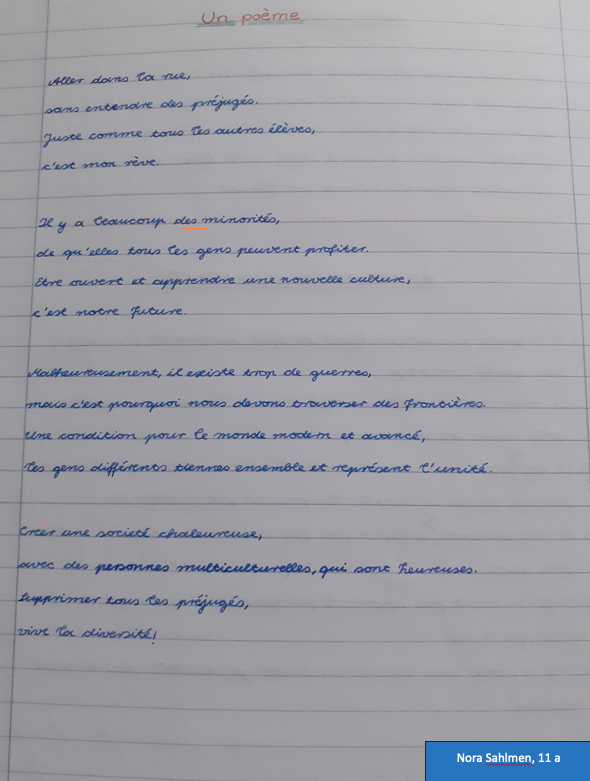 Un poème
Aller dans la rue,
sans entendre des préjugés.
Juste comme tous les autres élèves,
c'est mon rêve.
Il y a beaucoup des minorités,
de qu'elles tous les gens peuvent profiter.
Etre ouvert et apprendre une nouvelle culture,
c'est notre future.
Malheureusement, il existe trop de guerres,
mais c'est pourquoi nous devons traverser des frontières.
Une condition pour le monde modern et avancé,
les gens différents tiennes ensemble et représent l'unité.
Créer une societé chaleureuse,
avec des personnes multiculturelles, qui sont heureuses.
Supprimer tous les préjugés,
vive la diversité!
Nora Sahlmen, 11 a